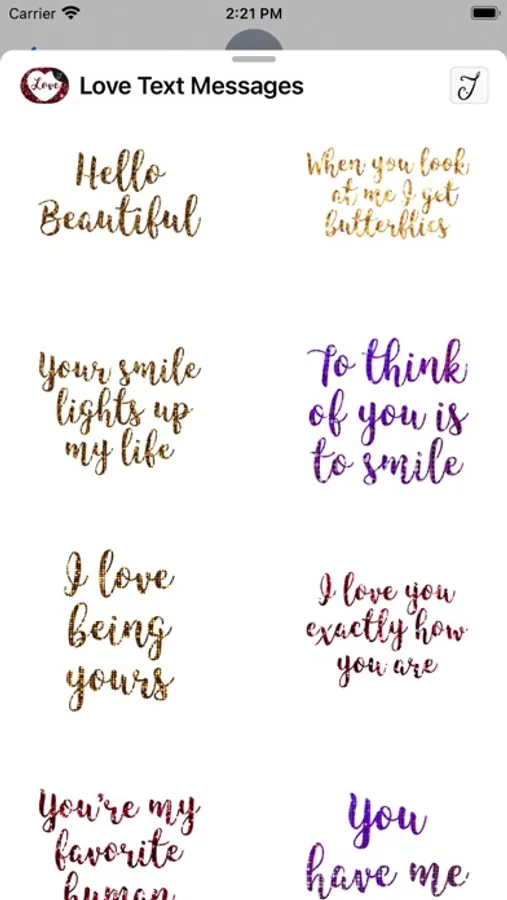 Carrier 2:21 PM
Love Love Text Messages J
Hello
Beautiful
When you look
at me I get
butterflies
Your smile
lights up
my life
To think
of you is
to smile
I love
being
yours
I love you
exactly how
you are
You're my
favorite
human
You
have me